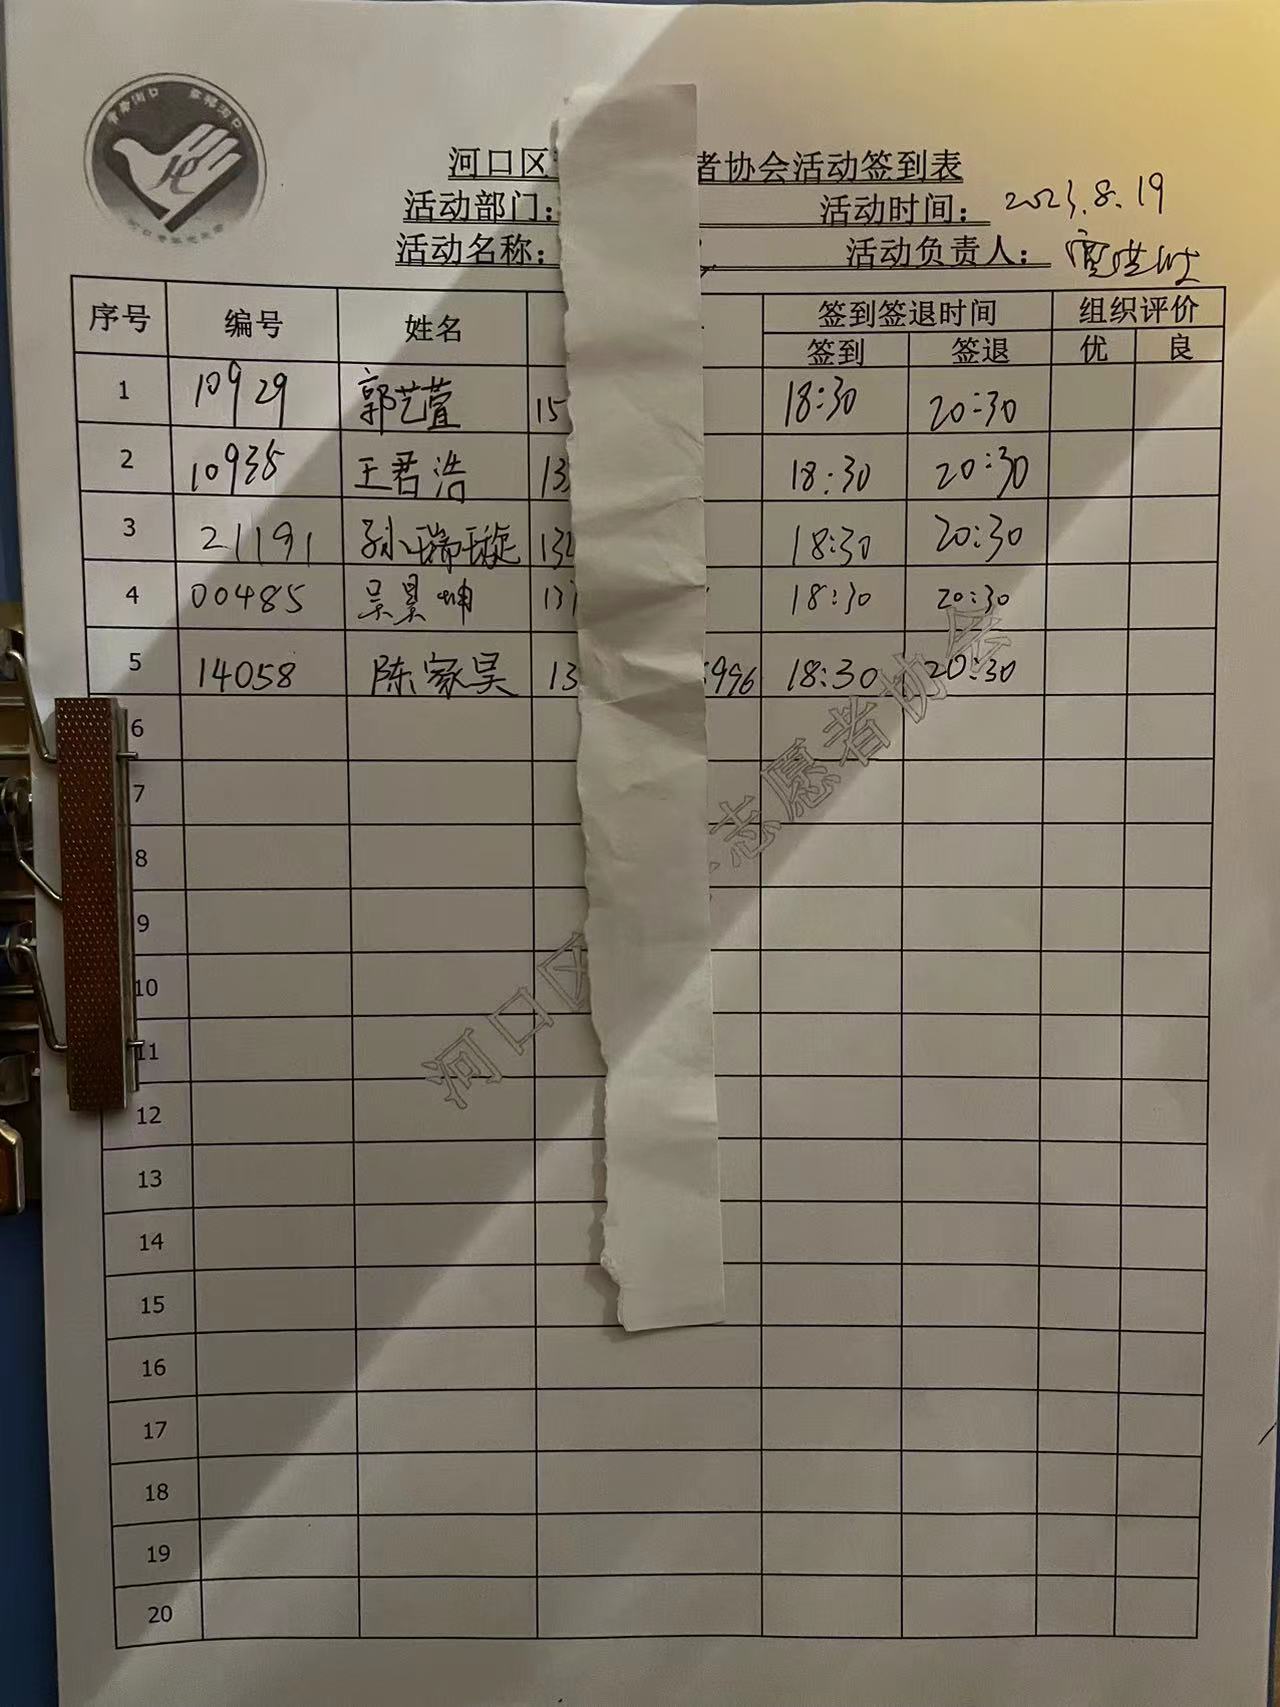 河口区
者协会活动签到表
活动部门:
活动时间: 2023.8.19
活动名称:
活动负责人:
序号 编号 姓名 签到签退时间 组织评价
签到 签退 优 良
1 10929 郭艺萱 15 18:30 20:30
2 10935 王君浩 13 18:30 20:30
3 21191 孙瑞璇 132 18:30 20:30
4 00485 吴昊坤 137 18:30 20:30
5 14058 陈家昊 13 996 18:30 20:30
6
7
8
9
10
11
12
13
14
15
16
17
18
19
20
河口区
志愿者协会